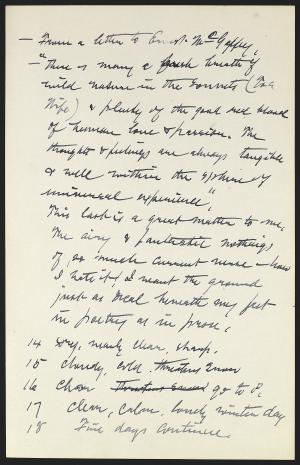 — From a letter to Ernst McGaffey,
— "There is many a fresh breath of
wild nature in the sonnets (The
Wife) & plenty of the good red blood
of human love & passion. The
thoughts & feelings are always tangible
& well within the sphere of
universal experience",
This last is a great matter to me.
The airy & fantastic nothings
of so much current verse — how
I hate it! I want the ground
just as real beneath my feet
in poetry as in prose.
14 Gray, nearly clear, sharp.
15 cloudy, cold. threatens snow
16 Clear threatens snow go to P.
17 Clear, calm, lovely winter day
18 Fine days continue.